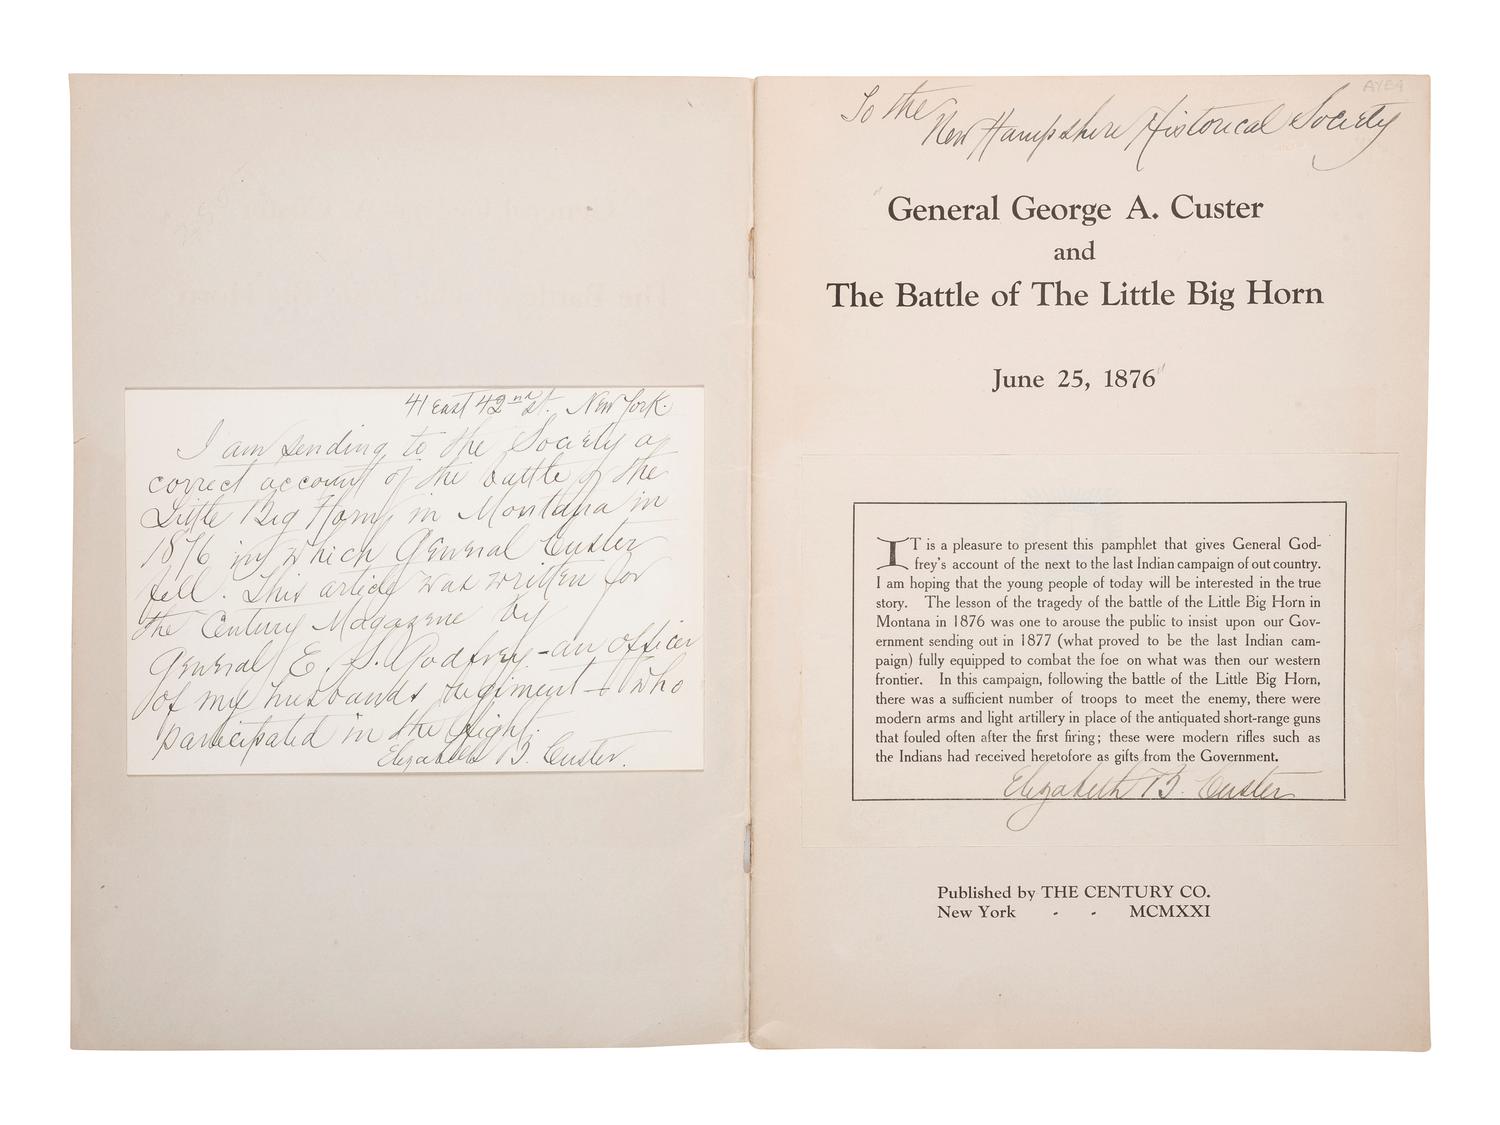 41 East 42nd St. New York.
I am sending to the Society a
correct account of the battle of the
Little Big Horn, in Montana in
1876 in which General Custer
fell. This article was written for
the Century Magazine by
General E. S. Godfrey - an officer
of my husbands regiment - who
participated in the fight.
Elizabeth B. Custer.
AYE4
To the
New Hampshire Historical Society
"General George A. Custer
and
The Battle of The Little Big Horn
June 25, 1876"
IT is a pleasure to present this pamphlet that gives General God-
frey's account of the next to the last Indian campaign of out country.
I am hoping that the young people of today will be interested in the true
story. The lesson of the tragedy of the battle of the Little Big Horn in
Montana in 1876 was one to arouse the public to insist upon our Gov-
ernment sending out in 1877 (what proved to be the last Indian cam-
paign) fully equipped to combat the foe on what was then our western
frontier. In this campaign, following the battle of the Little Big Horn,
there was a sufficient number of troops to meet the enemy, there were
modern arms and light artillery in place of the antiquated short-range guns
that fouled often after the first firing; these were modern rifles such as
the Indians had received heretofore as gifts from the Government.
Elizabeth B. Custer
Published by THE CENTURY CO.
New York - - MCMXXI